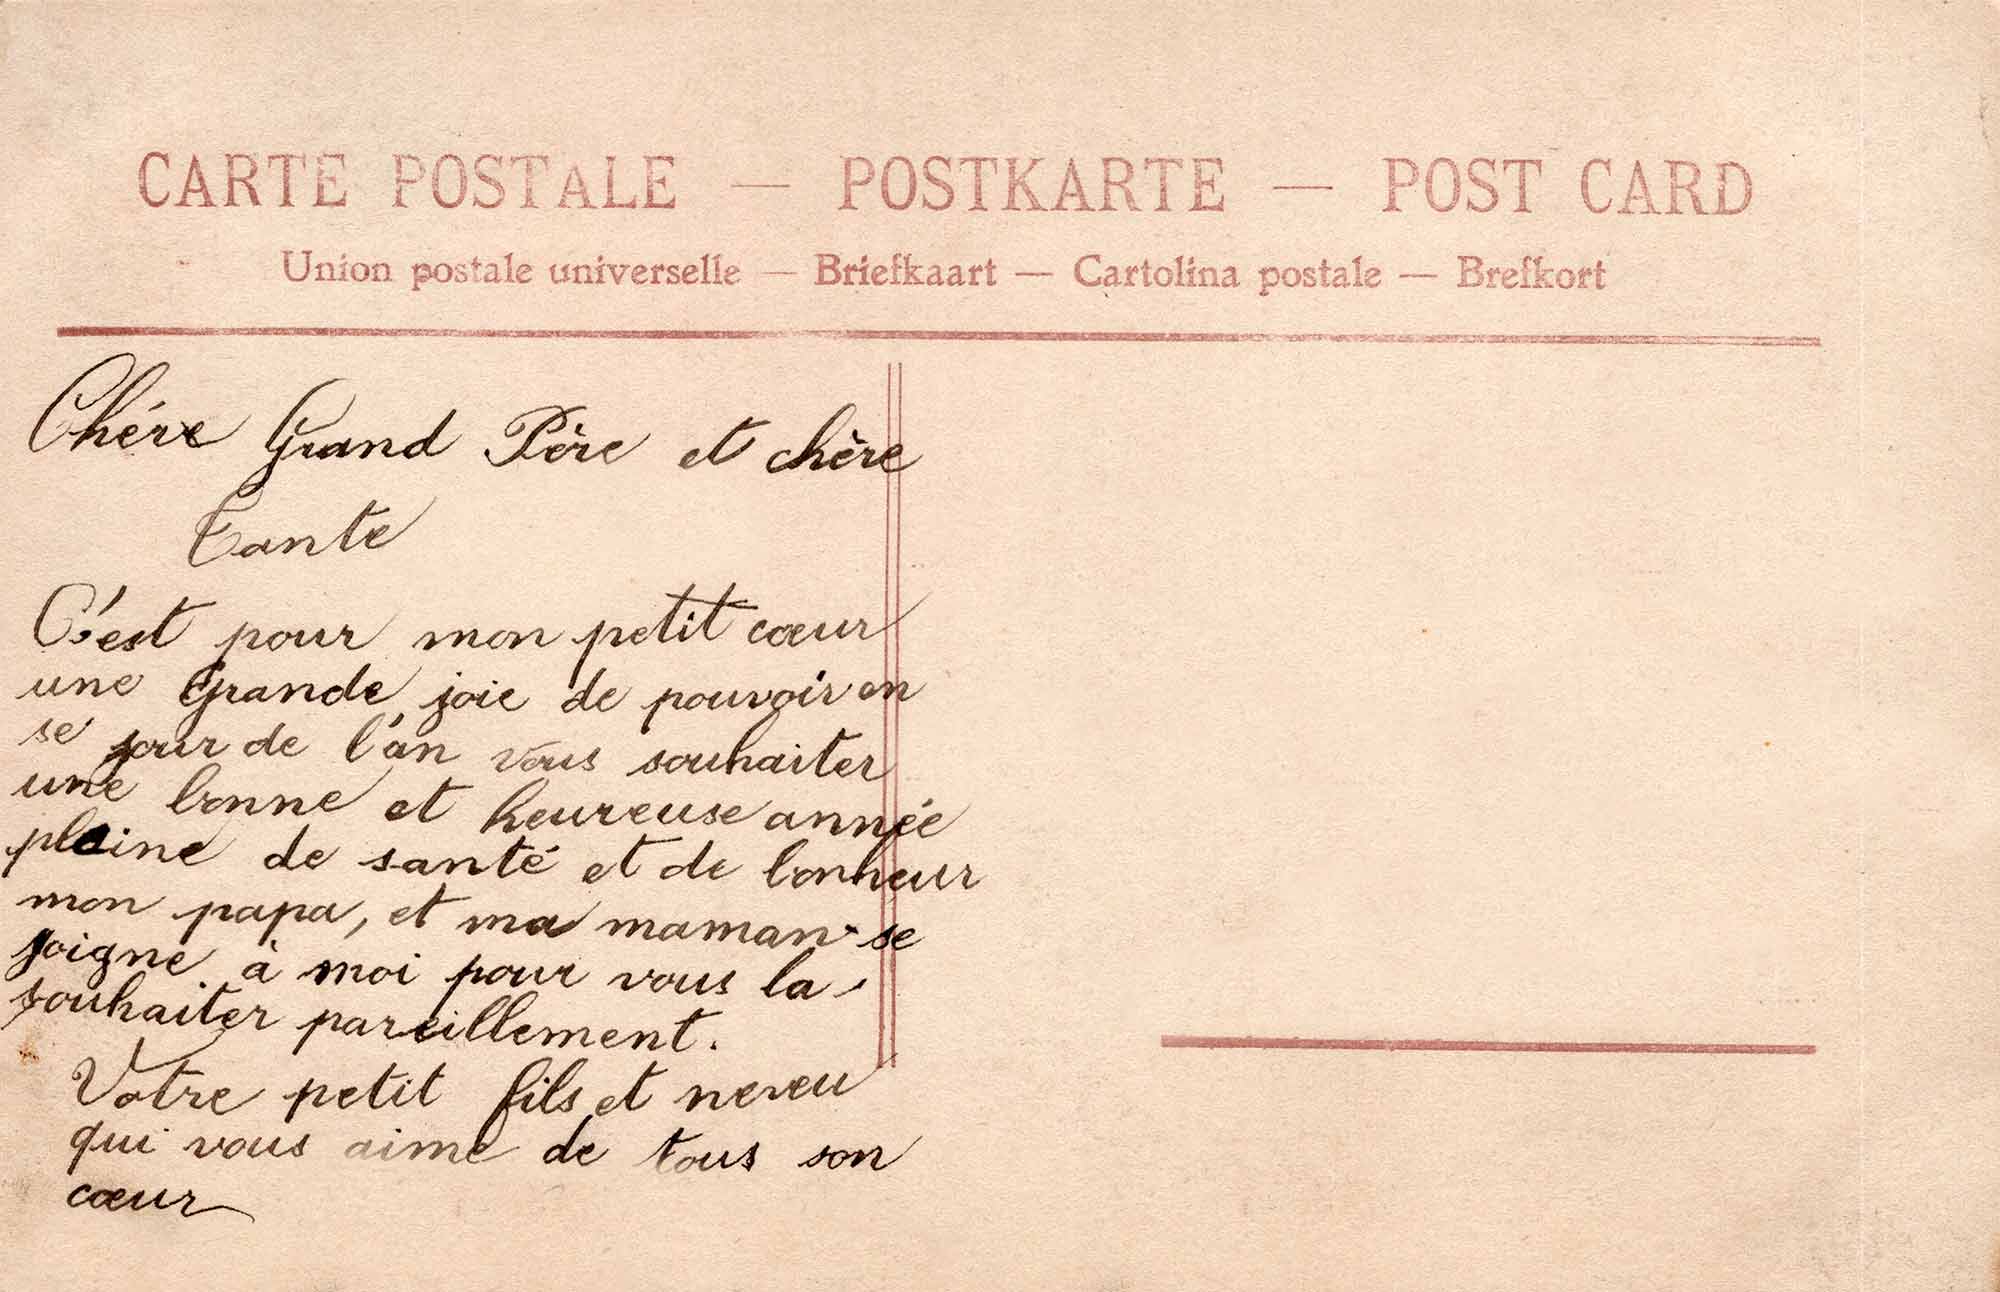 CARTE POSTALE — POSTKARTE — POST CARD
Union postale universelle — Briefkaart — Cartolina postale — Brefkort
Chére Grand Père et chère
Tante
C'est pour mon petit cœur
une Grande joie de pouvoir en
se jour de l'an vous souhaiter
une bonne et heureuse année
pleine de santé et de bonheur
mon papa, et ma maman se
joigne à moi pour vous la
souhaiter pareillement.
Votre petit fils et neveu
qui vous aime de tous son
cœur